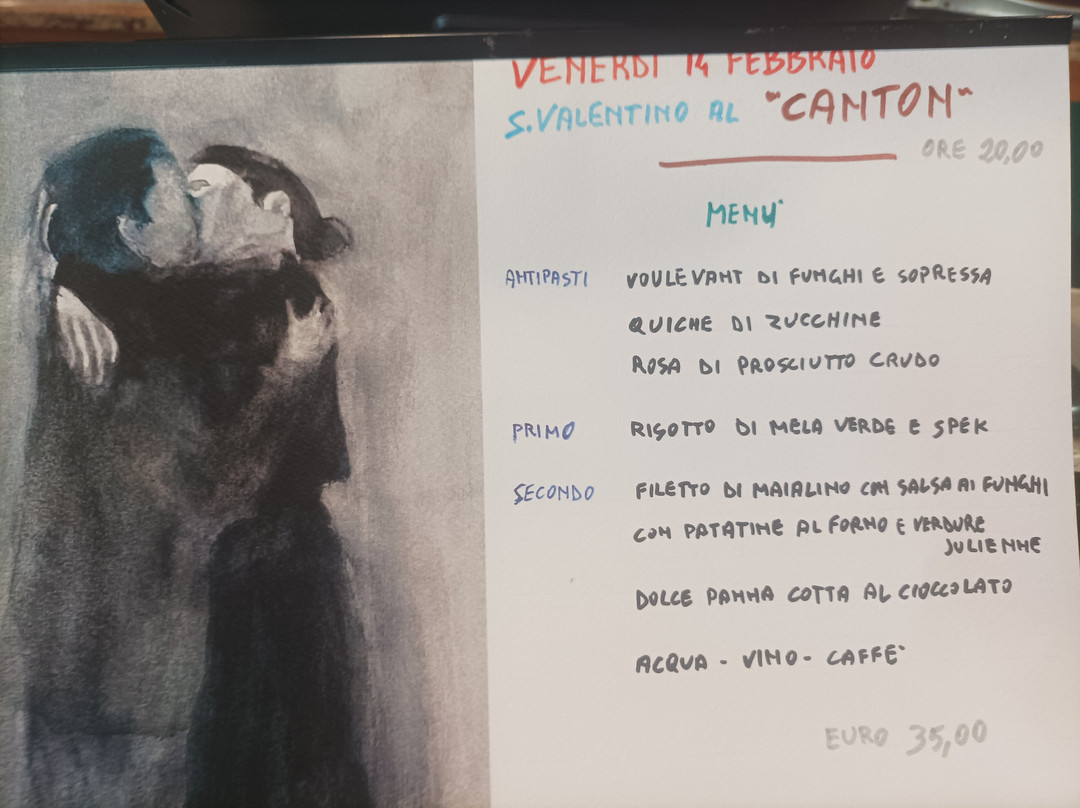 VENERDI 14 FEBBRAIO
S. VALENTINO AL "CANTON"
ORE 20,00
MENU'
ANTIPASTI VOULEVANT DI FUNGHI E SOPRESSA
QUICHE DI ZUCCHINE
ROSA DI PROSCIUTTO CRUDO
PRIMO RISOTTO DI MELA VERDE E SPEK
SECONDO FILETTO DI MAIALINO CON SALSA AI FUNGHI
CON PATATINE AL FORNO E VERDURE
JULIENNE
DOLCE PANNA COTTA AL CIOCCOLATO
ACQUA - VINO - CAFFE'
EURO 35,00